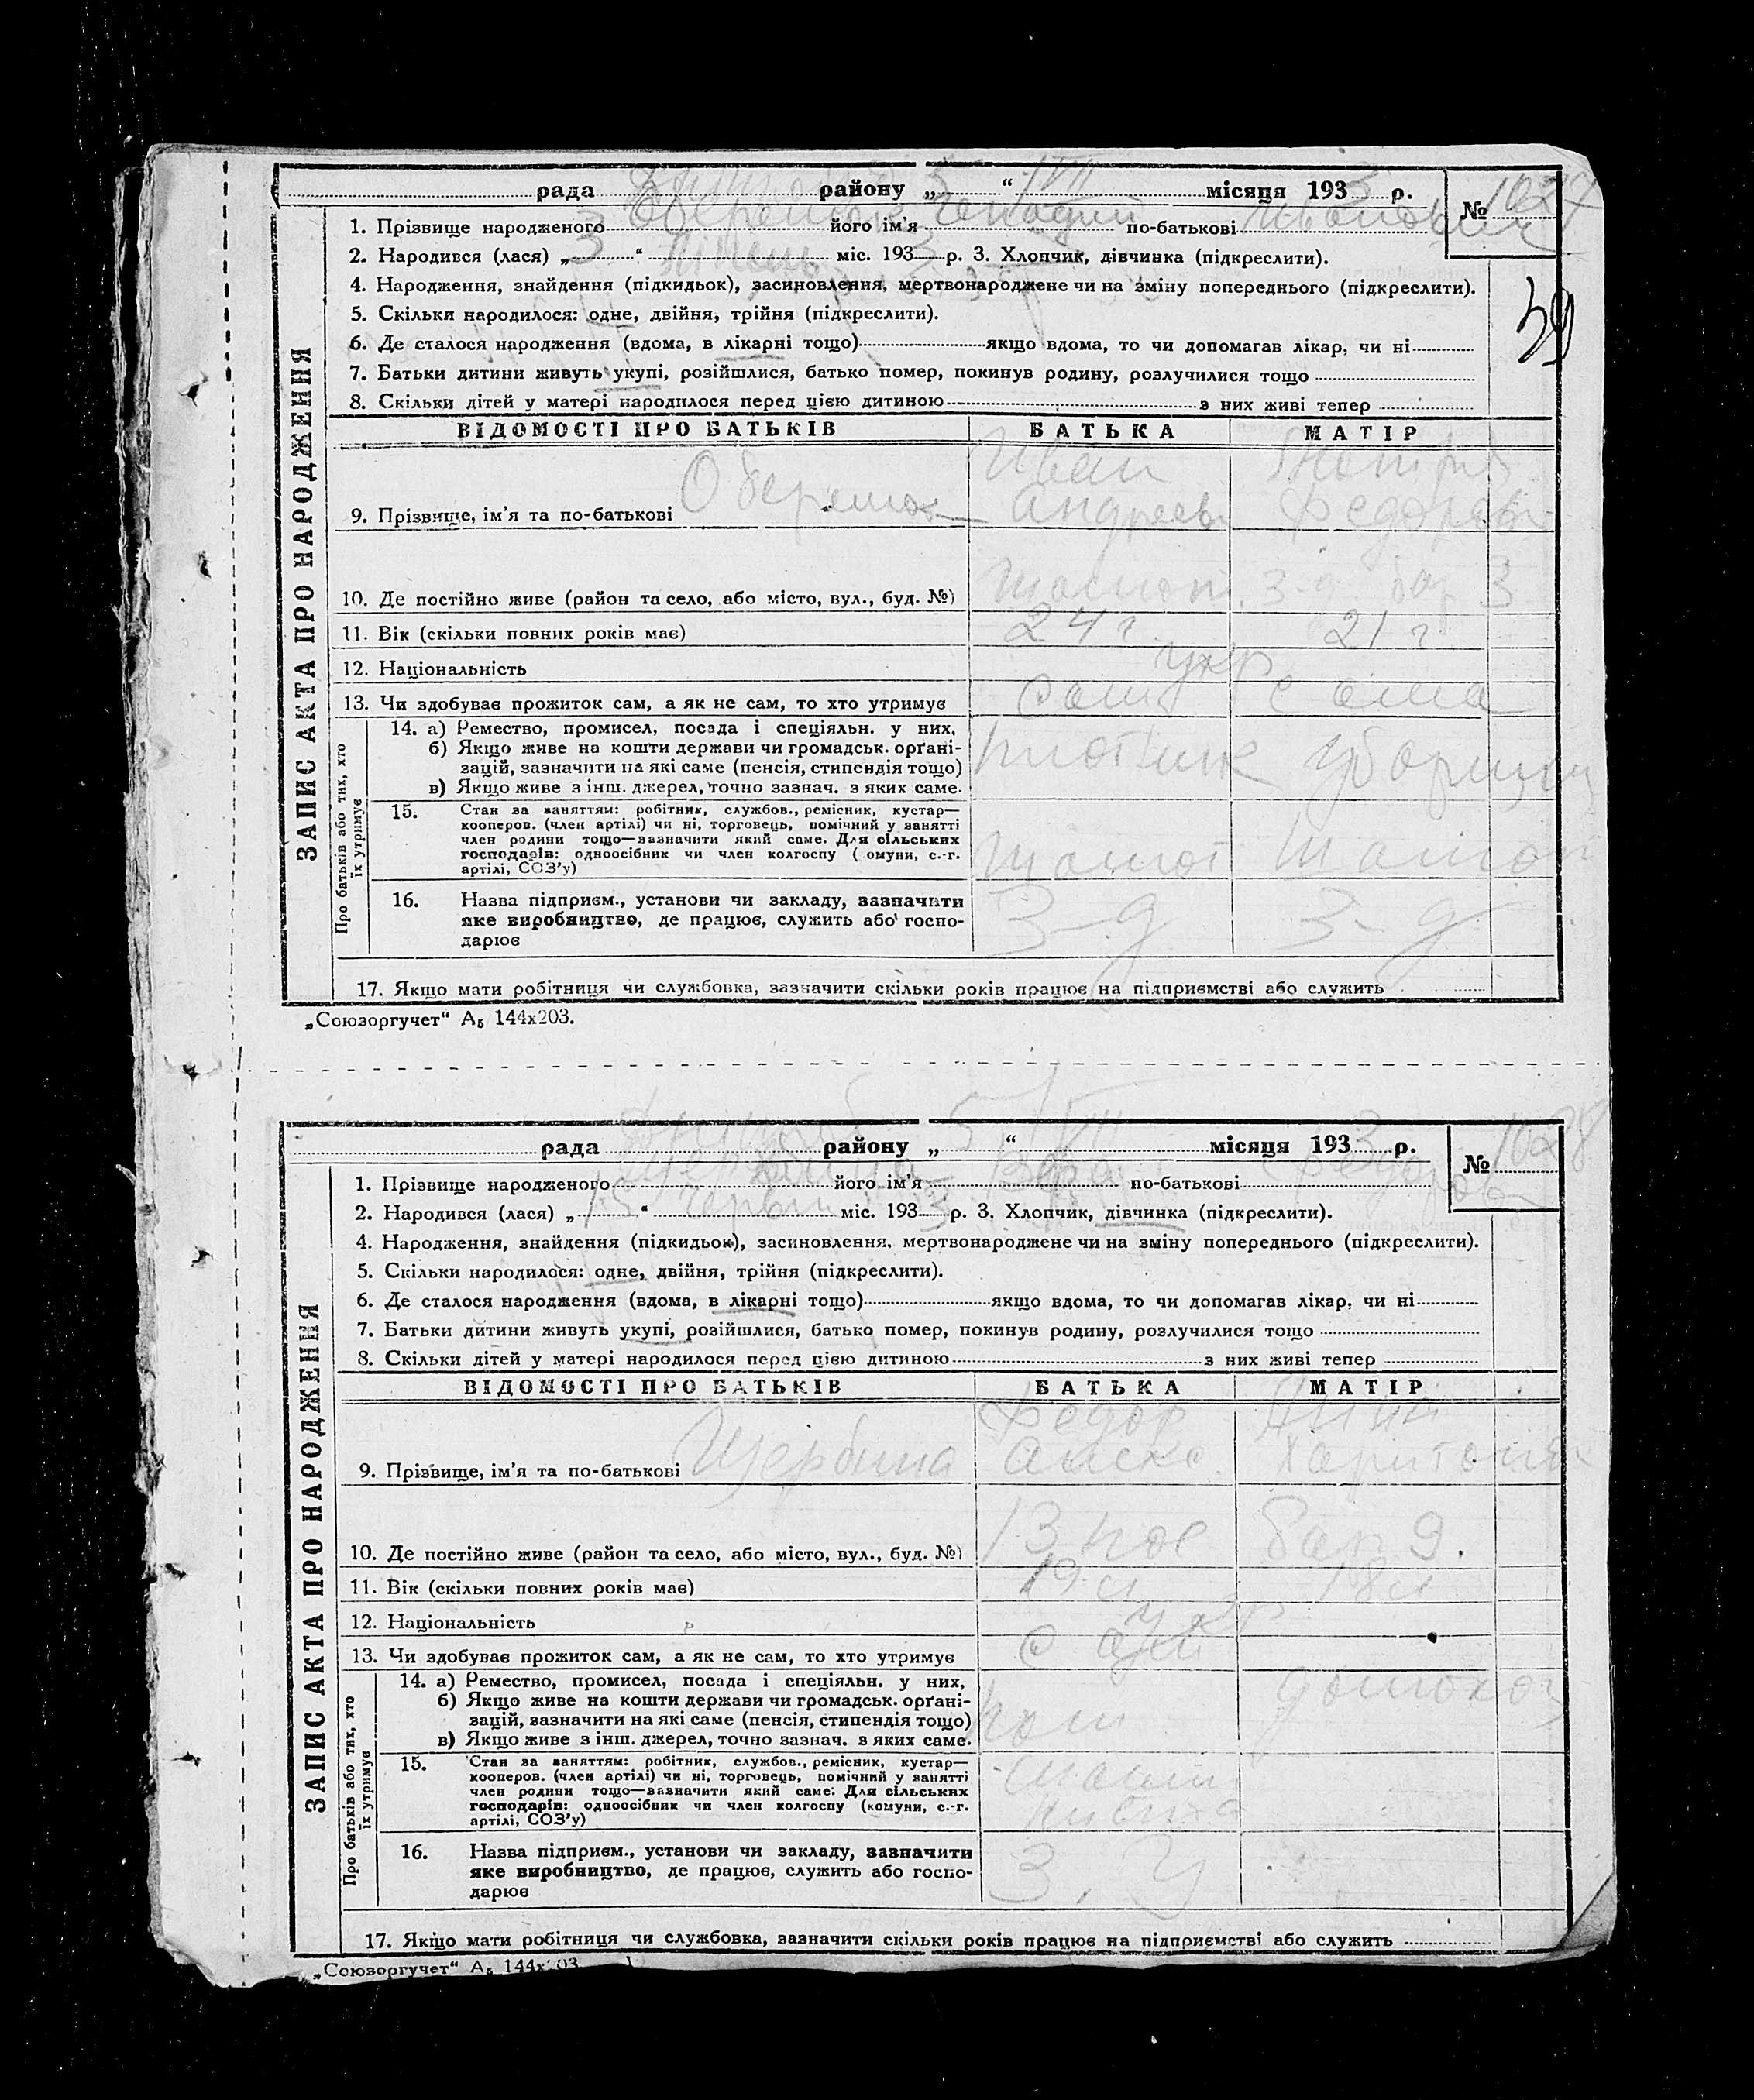 рада района „ 5 “ VII місяця 1933 р.
№ 1027
1. Прізвище народженого його ім'я Генадий по-батькові Иванович
2. Народився (лася) „ 3 “ міс. 1933 р. 3. Хлопчик, дівчинка (підкреслити).
4. Народження, знайдення (підкидьок), засиновлення, мертвонароджене чи на зміну попереднього (підкреслити).
39
5. Скільки народилося: одне, двійня, трійня (підкреслити).
6. Де сталося народження (вдома, в лікарні тощо) якщо вдома, то чи допомагав лікар, чи ні
7. Батьки дитини живуть укупі, розійшлися, батько помер, покинув родину, розлучилися тощо
8. Скільки дітей у матері народилося перед цією дитиною з них живі тепер
ЗАПИС АКТА ПРО НАРОДЖЕННЯ
ВІДОМОСТІ ПРО БАТЬКІВ БАТЬКА МАТІР
Иван
9. Прізвище, ім'я та по-батькові Андреев Федоров
10. Де постійно живе (район та село, або місто, вул., буд. №) 3 бар 3
11. Вік (скільки повних років має) 24 г 21 г
12. Національність укр
13. Чи здобуває прожиток сам, а як не сам, то хто утримує сам сама
Про батьків або тих, хто їх утримує
14. а) Ремество, промисел, посада і спеціяльн. у них,
б) Якщо живе на кошти держави чи громадськ. орґані-
зацій, зазначити на які саме (пенсія, стипендія тощо) плотник уборщиц
в) Якщо живе з інш. джерел, точно зазнач. з яких саме.
15. Стан за заняттям: робітник, службов., ремісник, кустар—
кооперов. (член артілі) чи ні, торговець, помічний у занятті
член родини тощо—зазначити який саме. Для сільських
господарів: одноосібник чи член колгоспу ( омуни, с.-г.
артілі, СОЗ'у) Шамот Шамот
16. Назва підприєм., установи чи закладу, зазначити
яке виробництво, де працює, служить або госпо- 3-д 3-д
дарює
17. Якщо мати робітниця чи службовка, зазначити скільки років працює на підприємстві або служить
„Союзоргучет“ А₅ 144х203.
рада району „ 5 “ VII місяця 1933 р.
№ 1028
1. Прізвище народженого його ім'я Вера по-батькові
2. Народився (лася) „ 15 “ червня міс. 1933 р. 3. Хлопчик, дівчинка (підкреслити).
4. Народження, знайдення (підкидьок), засиновлення, мертвонароджене чи на зміну попереднього (підкреслити).
5. Скільки народилося: одне, двійня, трійня (підкреслити).
6. Де сталося народження (вдома, в лікарні тощо) якщо вдома, то чи допомагав лікар, чи ні
7. Батьки дитини живуть укупі, розійшлися, батько помер, покинув родину, розлучилися тощо
8. Скільки дітей у матері народилося перед цією дитиною з них живі тепер
ЗАПИС АКТА ПРО НАРОДЖЕННЯ
ВІДОМОСТІ ПРО БАТЬКІВ БАТЬКА МАТІР
Федор Анна
9. Прізвище, ім'я та по-батькові Щербина Алекс. Харитон
10. Де постійно живе (район та село, або місто, вул., буд. №) 13 пос бар 9.
11. Вік (скільки повних років має) 19 л 18 л
12. Національність укр
13. Чи здобуває прожиток сам, а як не сам, то хто утримує сам
Про батьків або тих, хто їх утримує
14. а) Ремество, промисел, посада і спеціяльн. у них, домохоз
б) Якщо живе на кошти держави чи громадськ. орґані-
зацій, зазначити на які саме (пенсія, стипендія тощо)
в) Якщо живе з інш. джерел, точно зазнач. з яких саме.
15. Стан за заняттям: робітник, службов., ремісник, кустар—
кооперов. (член артілі) чи ні, торговець, помічний у занятті
член родини тощо—зазначити який саме: Для сільських
господарів: одноосібник чи член колгоспу (комуни, с.-г.
артілі, СОЗ'у)
16. Назва підприєм., установи чи закладу, зазначити
яке виробництво, де працює, служить або госпо-
дарює
17. Якщо мати робітниця чи службовка, зазначити скільки років працює на підприємстві або служить
„Союзоргучет“ А₅ 144х203